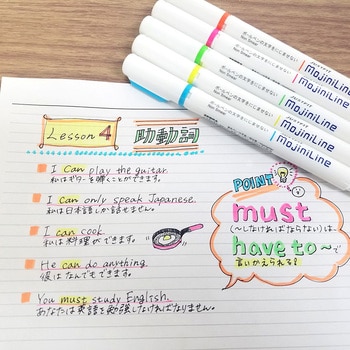 ボールペンの文字をにじませない
Non Smear
MojiniLine
ボールペンの文字をにじませない
Non Smear
MojiniLine
ボールペンの文字をにじませない
Non Smear
MojiniLine
ボールペンの文字をにじませない
Non Smear
MojiniLine
Lesson 4 助動詞
I can play the guitar.
私はギターを弾くことができます。
I can only speak Japanese.
私は日本語しか話せません。
I can cook
私は料理ができます。
He can do anything.
彼はなんでもできます。
You must study English.
あなたは英語を勉強しなければなりません。
POINT
must
(～しなければならない)は、
have to～で
言いかえられる!